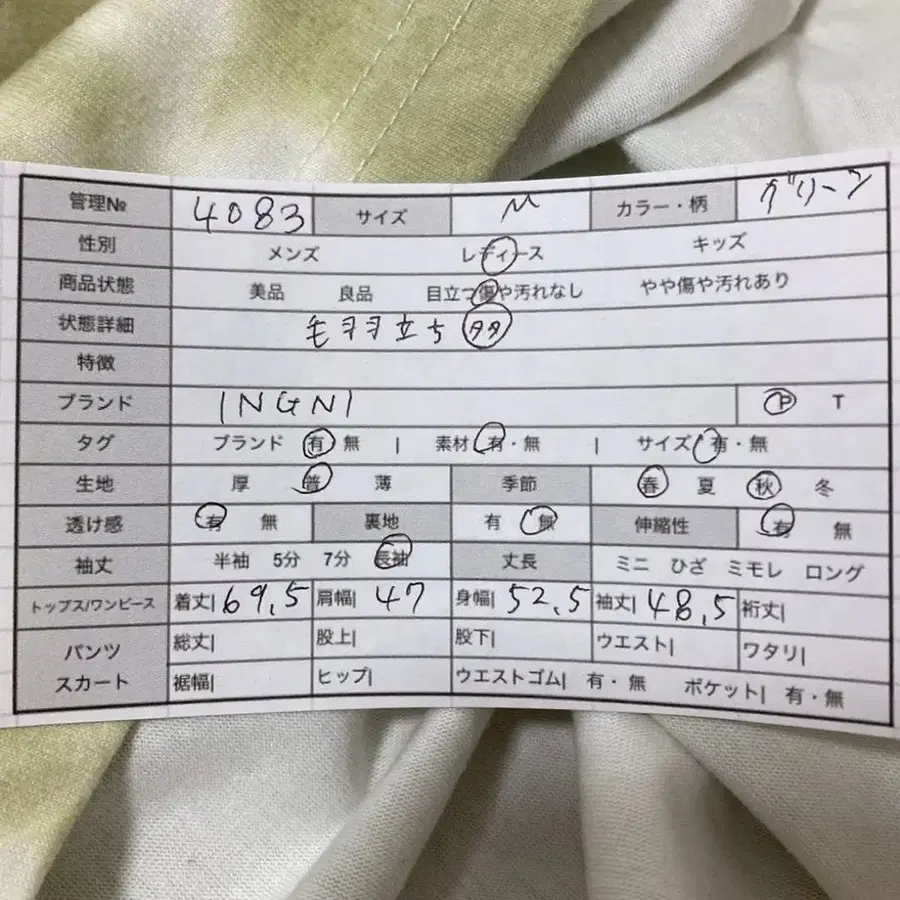 管理№ 4083 サイズ M カラー・柄 グリーン
性別 メンズ レディース キッズ
商品状態 美品 良品 目立つ傷や汚れなし やや傷や汚れあり
状態詳細 毛ヨヨ立ち タタ
特徴
ブランド INGNI P T
タグ ブランド 有 無 | 素材 有・無 | サイズ 有・無
生地 厚 普 薄 季節 春 夏 秋 冬
透け感 有 無 裏地 有 無 伸縮性 有 無
袖丈 半袖 5分 7分 長袖 丈長 ミニ ひざ ミモレ ロング
トップス/ワンピース 着丈| 69,5 肩幅| 47 身幅| 52,5 袖丈| 48,5 裄丈|
パンツ スカート 総丈| 股上| 股下| ウエスト| ワタリ|
裾幅| ヒップ| ウエストゴム| 有・無 ポケット| 有・無